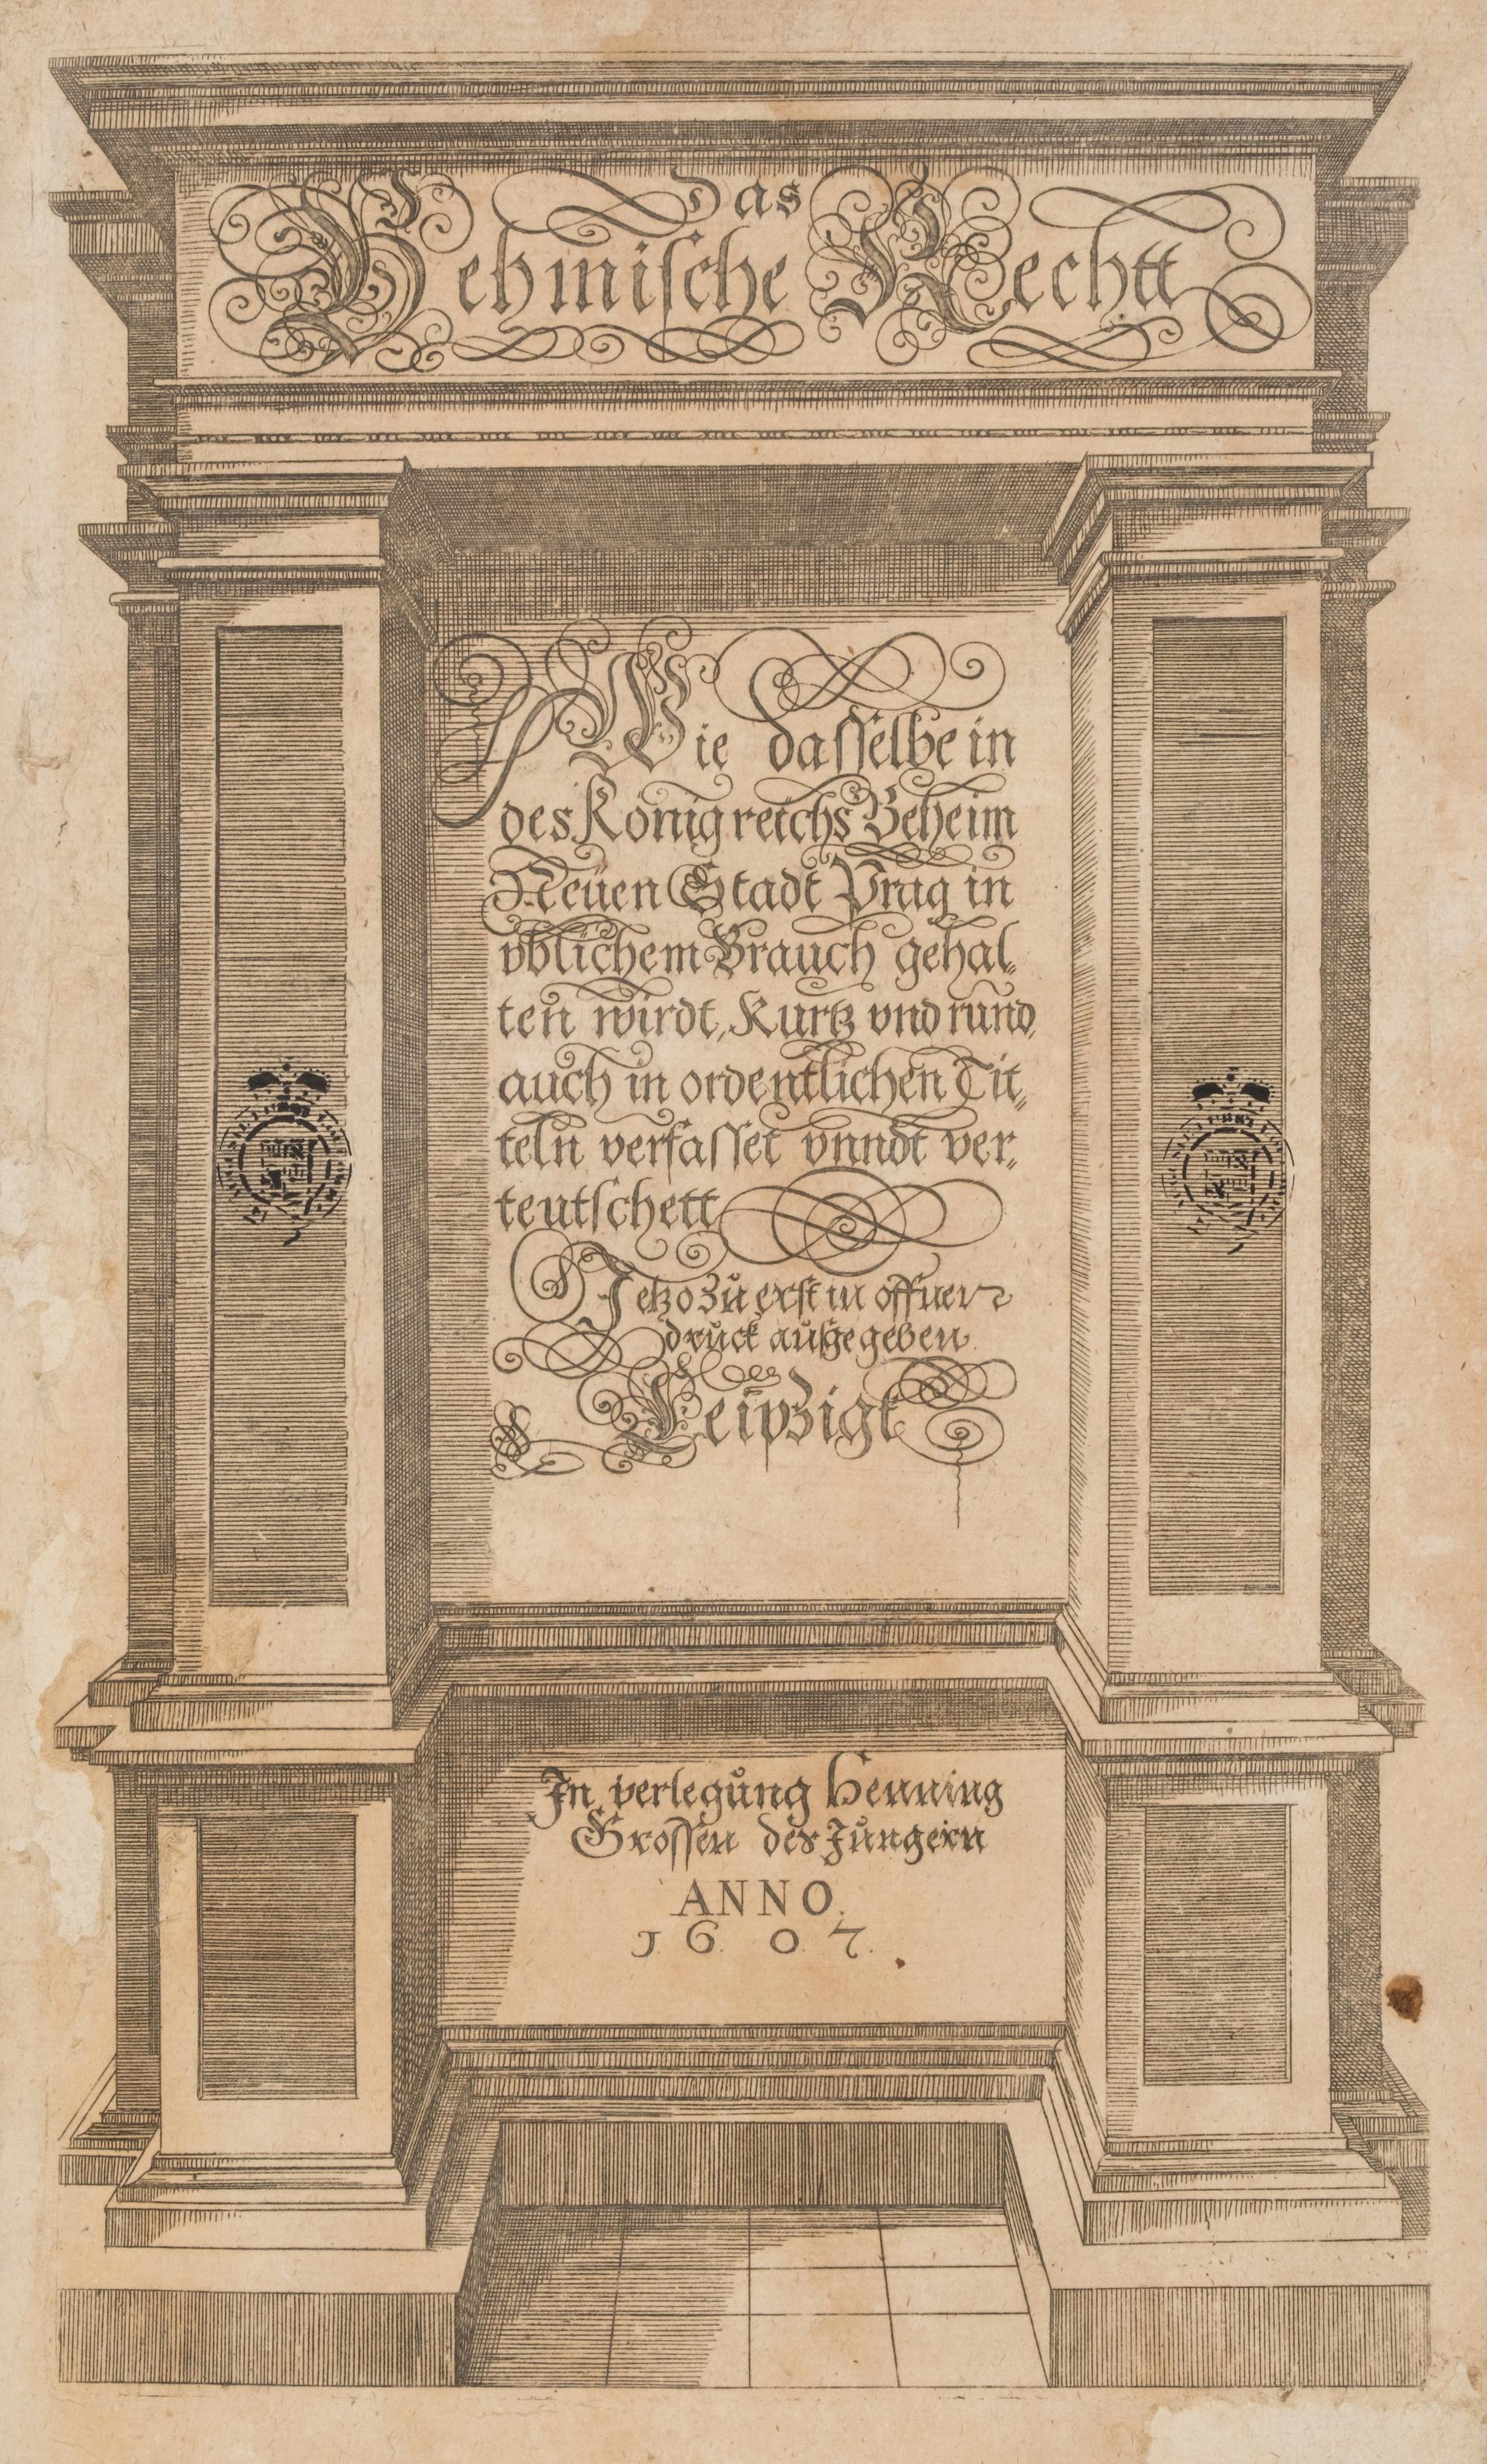 Das
Behmische Rechtt
Wie dasselbe in
des Königreichs Beheim
Neuen Stadt Prag in
vblichem Brauch gehal„
ten wirdt, Kurtz vnd rund,
auch in ordentlichen Tit„
teln verfasset vnndt ver„
teutschett
Jetzo zu erst in offner
druck außgegeben.
Leipzigk
In verlegung Henning
Grossen des Jungern
ANNO.
1607.